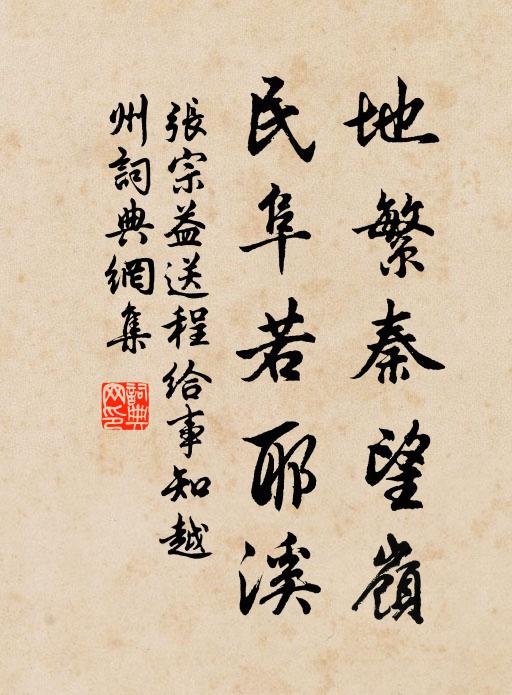 地繁秦望嶺
民阜若耶溪
張宗益送程給事知越
州詞典網集
詞典網印